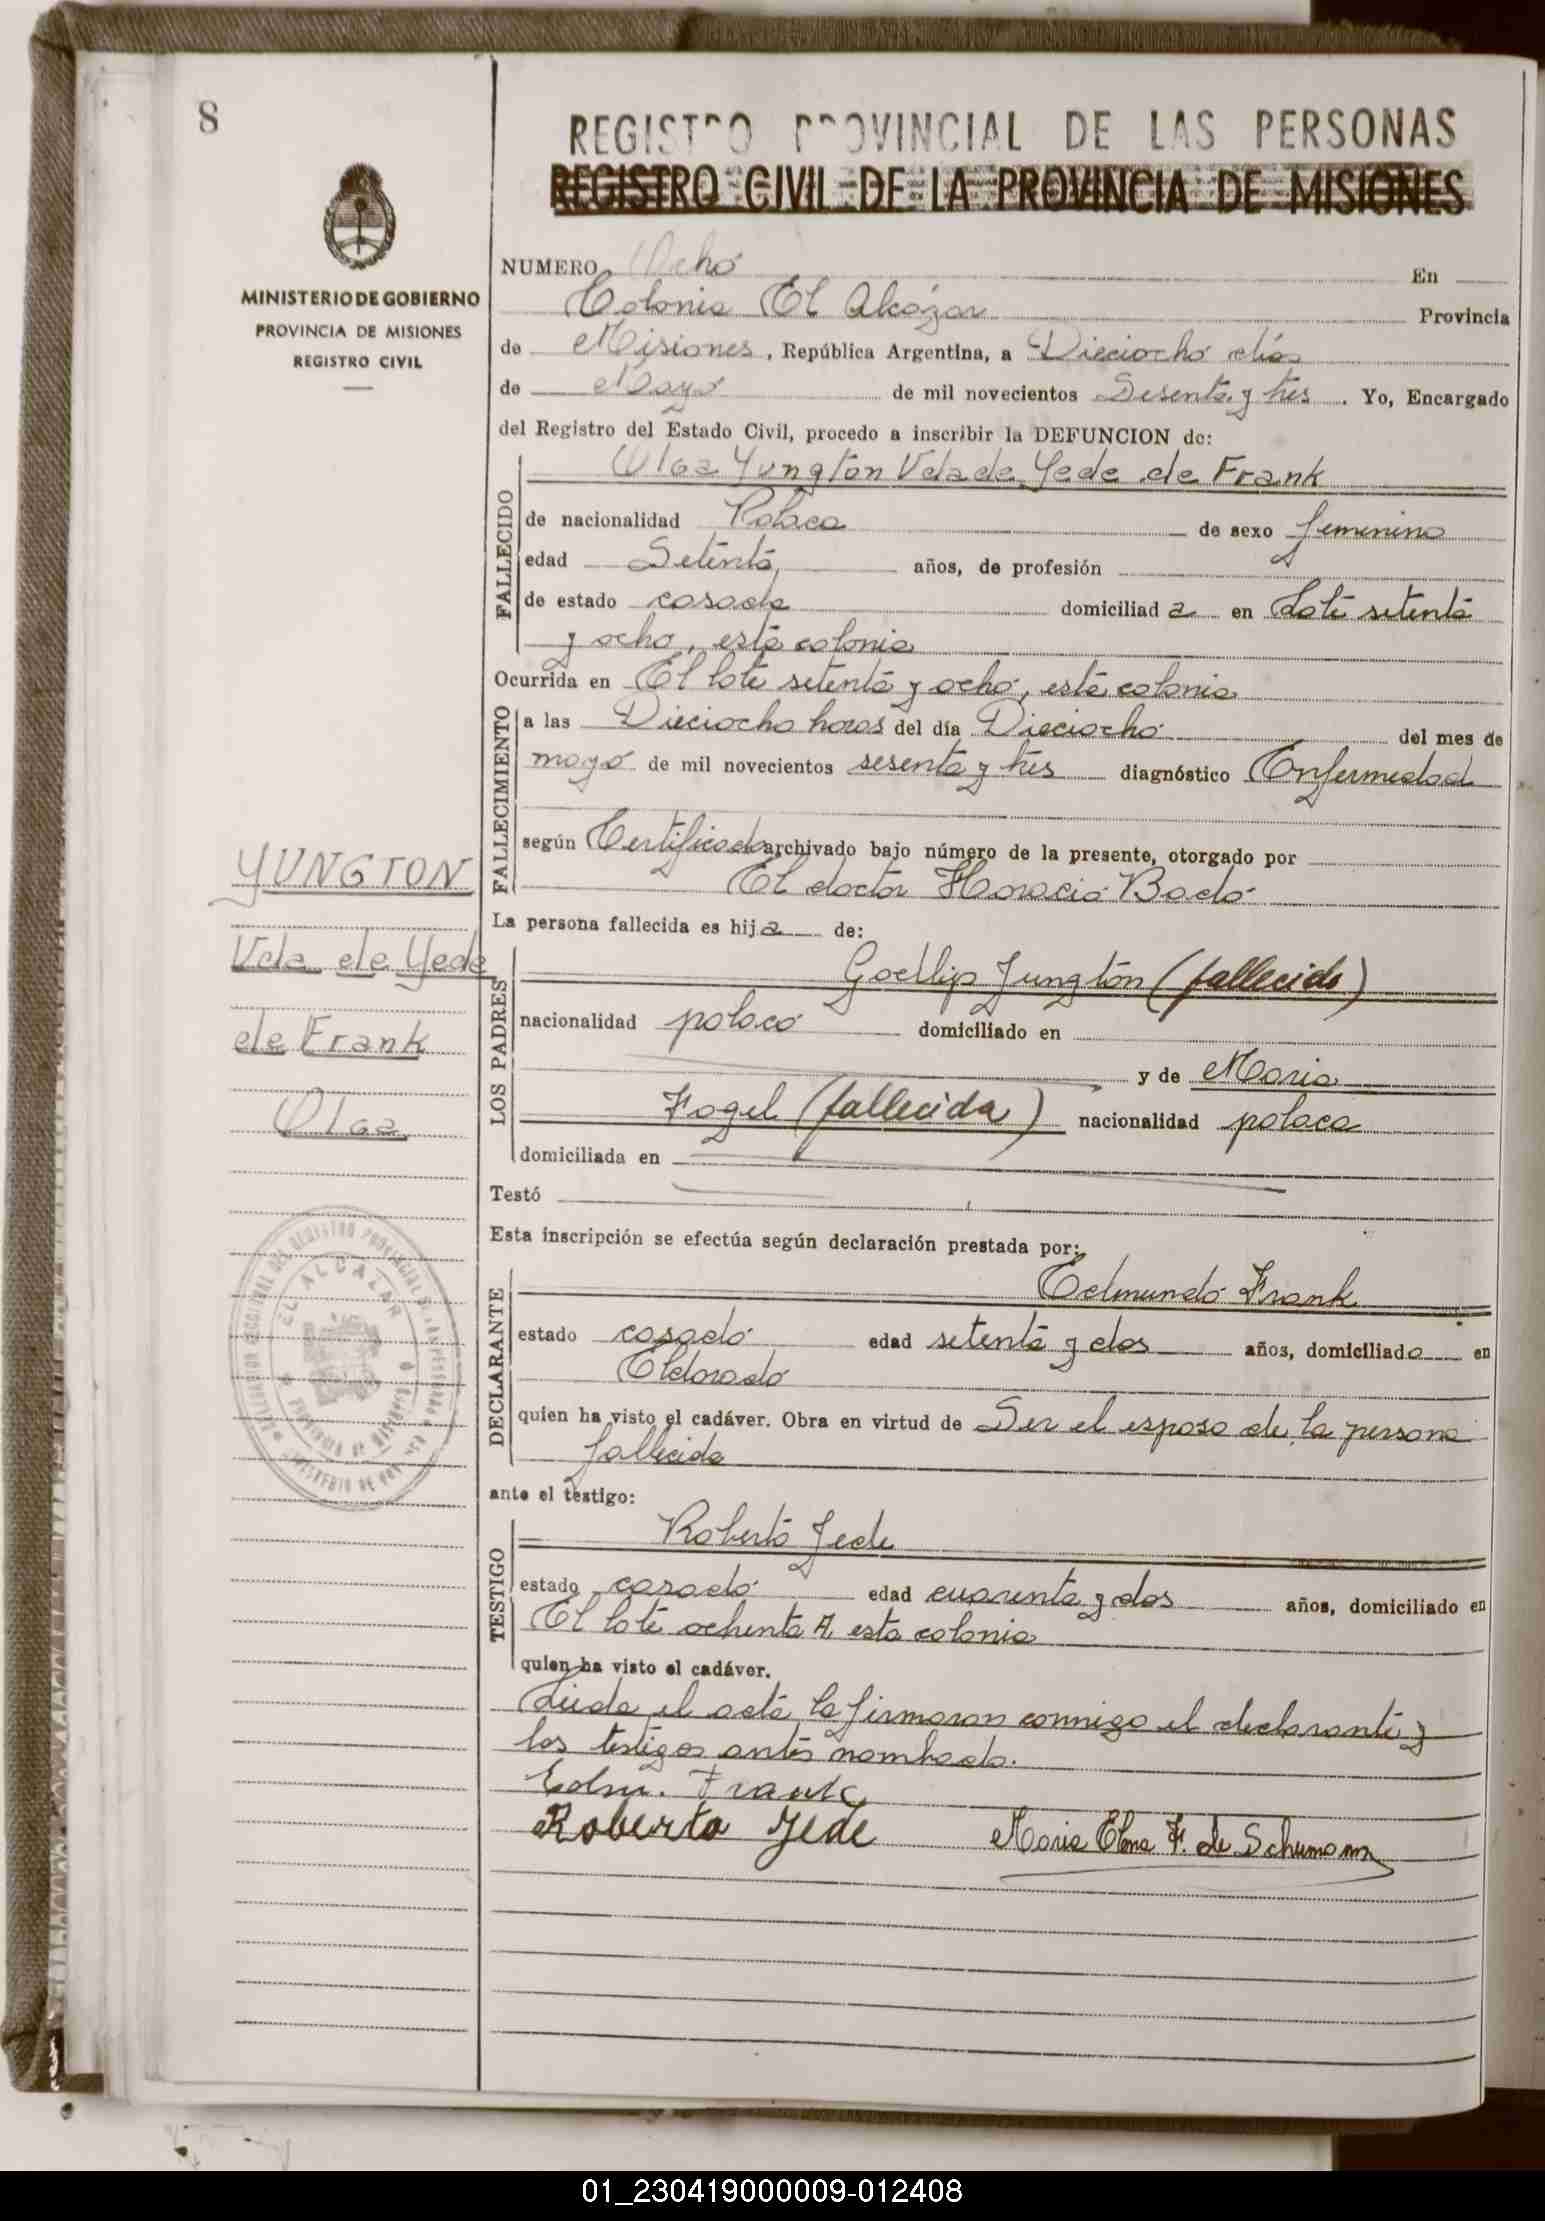 8
REGISTRO PROVINCIAL DE LAS PERSONAS
REGISTRO CIVIL DE LA PROVINCIA DE MISIONES
MINISTERIO DE GOBIERNO
PROVINCIA DE MISIONES
REGISTRO CIVIL
NUMERO Ocho En
Colonia El Alcázar Provincia
de Misiones, República Argentina, a Dieciocho días
de Mayo de mil novecientos Sesenta y tres. Yo, Encargado
del Registro del Estado Civil, procedo a inscribir la DEFUNCION de:
FALLECIDO
Olga Yungton Vda de Yede de Frank
de nacionalidad Polaca de sexo femenino
edad Setenta años, de profesión
de estado casada domiciliad a en Lote setenta
y ocho, esta colonia
Ocurrida en El lote setenta y ocho, esta colonia
FALLECIMIENTO
a las Dieciocho horas del día Dieciocho del mes de
mayo de mil novecientos sesenta y tres diagnóstico Enfermedad
según Certificado archivado bajo número de la presente, otorgado por
El doctor Horacio Bado
La persona fallecida es hija de:
LOS PADRES
Goetlip Jungton (fallecido)
nacionalidad polaco domiciliado en
y de Maria
Fogel (fallecida) nacionalidad polaca
domiciliada en
Testó
Esta inscripción se efectúa según declaración prestada por:
DECLARANTE
Edmundo Frank
estado casado edad setenta y dos años, domiciliado en
Eldorado
quien ha visto el cadáver. Obra en virtud de Ser el esposo de la persona
fallecida
ante el testigo:
TESTIGO
Roberto Jede
estado casado edad cuarenta y dos años, domiciliado en
El lote ochenta A esta colonia
quien ha visto el cadáver.
Leida el acta la firmaron conmigo el declarante y
los testigos antes nombrado.
Edm. Frank
Roberto Jede Maria Elena F. de Schumann
YUNGTON
Vda de Yede
de Frank
Olga
EL ALCAZAR
01_230419000009-012408